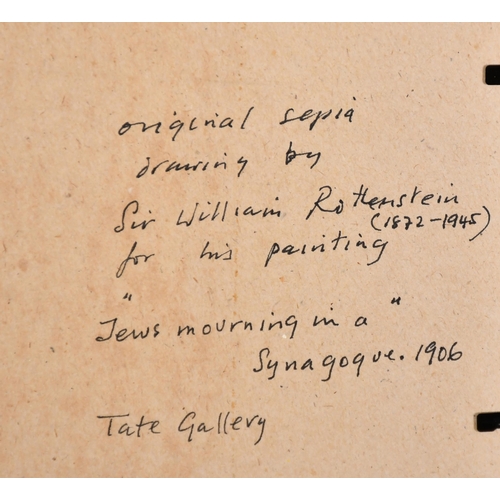 original sepia
drawing by
Sir William Rothenstein
(1872-1945)
for his painting
"Jews mourning in a"
Synagogue. 1906
Tate Gallery